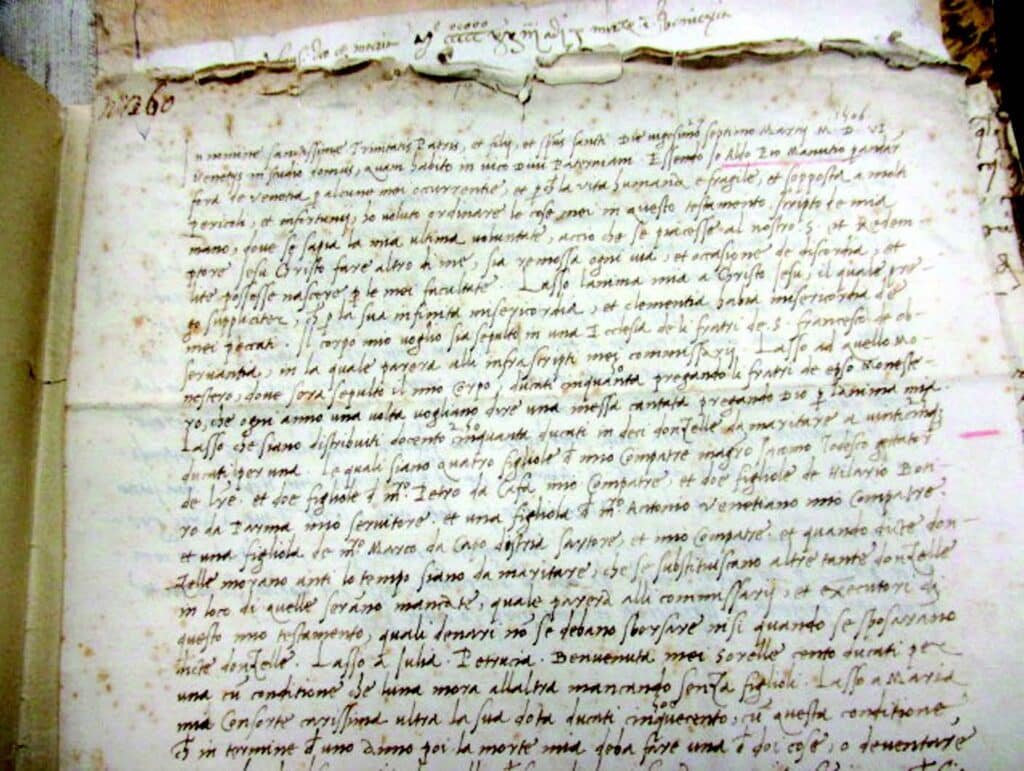 N° 260
1506
In nomine sanctissime Trinitatis Patris, et filij, et spūs sancti Die vigesimo septimo Martij M. D. VI,
Venetijs in studio domus, quam habito in vico Divi Paterniani. Essendo Io Aldo Pio Manutio p andar
fora de venetia p alcune mei occurrentie, et pch la vita humana e fragile, et sopposta a molti
pericoli, et infortunij, ho voluto ordinare le cose mei in questo testamento scripto de mia
mano, dove se sapia la mia ultima voluntate, accio che se piacesse al nostro S. et Redem
ptore Jesu Christo fare altro di me, sia remossa ogni via, et occasione de discordia, et
lite possesse nascere p le mei facultate. Lasso lanima mia a Christo Jesu, il quale pre-
go suppliciter, ch p la sua infinita misericordia, et clementia habia misericordia de
mei peccati. Il corpo mio voglio sia sepulto in una Ecclesia de li fratri de S. Francesco de ob-
servantia, in la quale parera alli infrascripti mei commissarij. Lasso ad quello Mo-
nestero, dove sora sepulto il mio corpo, ducati cinquanta pregando li fratri de epso Moneste
ro, che ogni anno una volta vogliano dire una messa cantata pregando Dio p lanima mia.
Lasso che siano distribuiti docento cinquanta ducati in deci donzelle da maritare a vinticinq
ducati per una. Le quali siano quatro figliole d mio Compatre magro Jacomo Todesco gittator
de lre, et doe figliole d m° Petro da Cafa mio Compatre, et doe figliole de Hilario Boti
ro da Parma mio servitore. et una figliola d m° Antonio Venetiano mio Compatre.
et una figliola de m° Marco da Capo distria sartore et mio Compare. et quando dicte don-
zelle morano anti lo tempo siano da maritare, che se substituiscano altre tante donzelle
in loco di quelle serano mancate, quale parera alli commissarij, et executori di
questo mio testamento, quali denari nō se debano sborsare nisi quando se sposarano
dicte donzelle. Lasso a Julia. Petrucia. Benvenuta mei sorelle cento ducati per
una cū conditione che luna mora allaltra mancando senza figlioli. Lasso a Maria
mia Consorte carissima ultra la sua dota ducati cinquecento, cū questa conditione,
ch in termine d uno anno poi la morte mia deba fare una d doi cose, o deventare